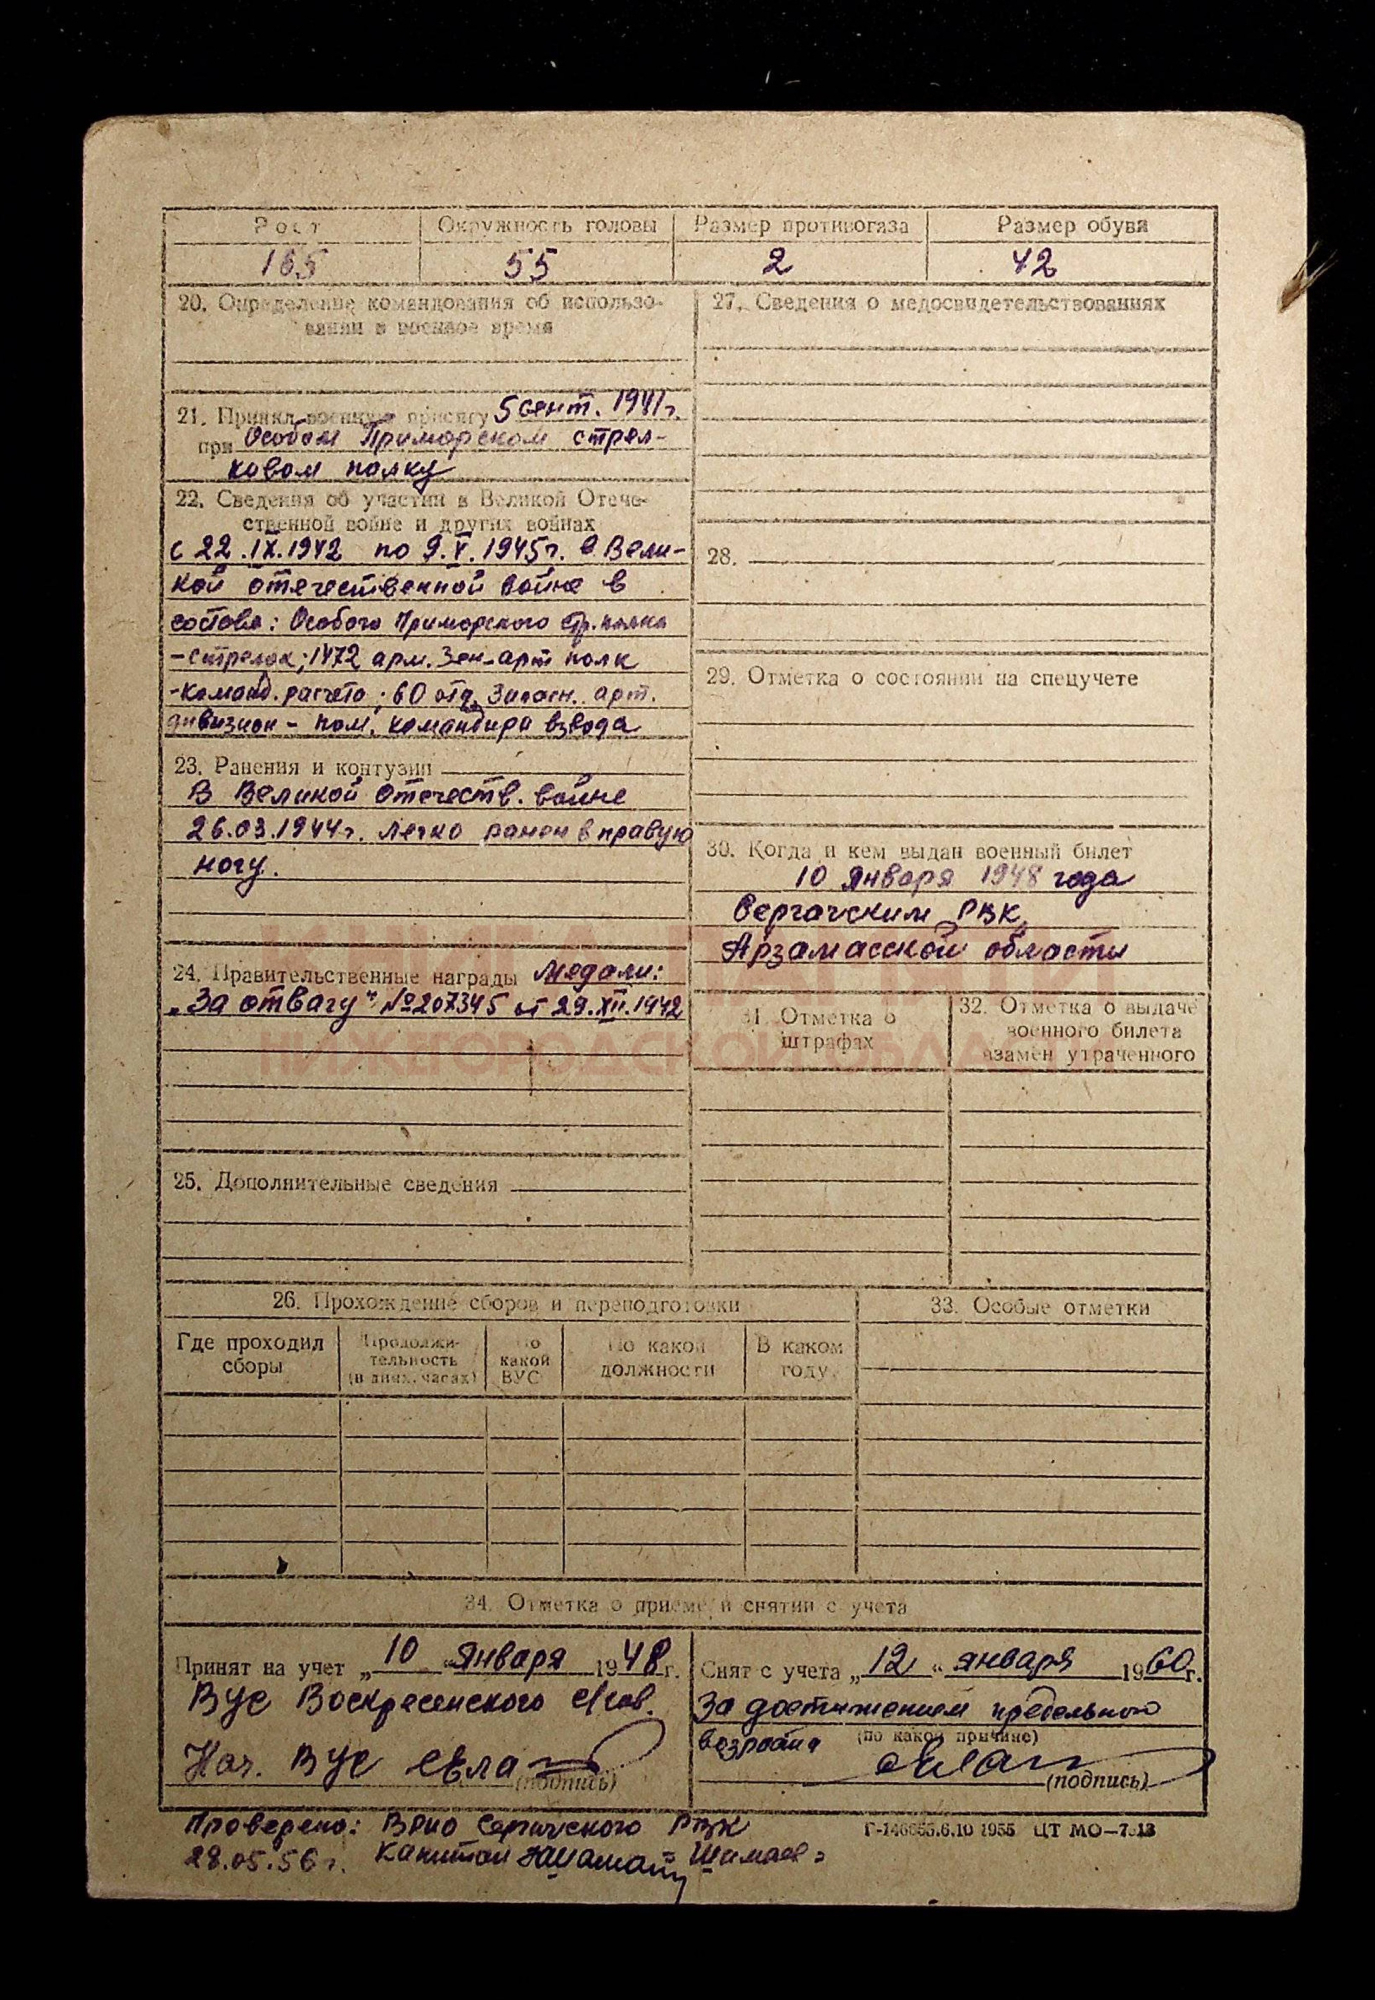 Рост Окружность головы Размер противогаза Размер обуви
165 55 2 42
20. Определение командования об использо-
вании в военное время
21. Принял военную присягу 5 сент. 1941г.
при Особом Приморском стрел-
ковом полку
22. Сведения об участии в Великой Отече-
ственной войне и других войнах
с 22.IX.1942 по 9.V.1945г. в Вели-
кой отечественной войне в
составе: Особого Приморского стр. полка
-стрелок; 1472 арм. Зен-арт полк
-команд. расчета; 60 отд. Запасн. арт.
дивизион - пом. командира взвода
23. Ранения и контузии
В Великой Отечеств. войне
26.03.1944г. легко ранен в правую
ногу.
24. Правительственные награды Медали:
„За отвагу" №207345 от 29.XII.1942
25. Дополнительные сведения
27. Сведения о медосвидетельствованиях
28.
29. Отметка о состоянии на спецучете
30. Когда и кем выдан военный билет
10 января 1948 года
Сергачским РВК
Арзамасской области
КНИГА ПАМЯТИ
НИЖЕГОРОДСКОЙ ОБЛАСТИ
31. Отметка о
штрафах
32. Отметка о выдаче
военного билета
взамен утраченного
26. Прохождение сборов и переподготовки
Где проходил
сборы
Продолжи-
тельность
(в днях, часах)
По
какой
ВУС
По какой
должности
В каком
году
33. Особые отметки
34. Отметка о приеме и снятии с учета
Принят на учет „10" января 1948г.
ВУС Воскресенского с/сов.
Нач. ВУС
(подпись)
Снят с учета „12" января 1960г.
За достижением предельного
возраста (по какой причине)
(подпись)
Проверено: ВРИО Сергачского РВК
28.05.56г. Капитан Шамаев
6.10 1955 ЦТ МО—7.13